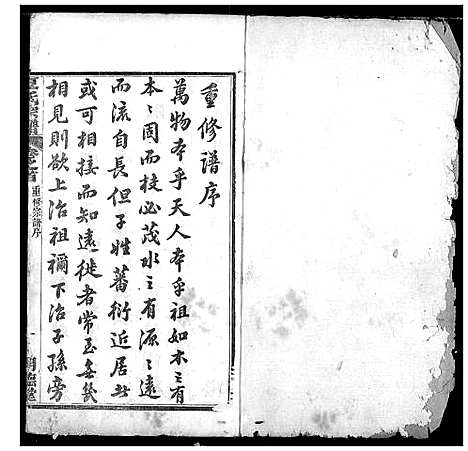 重修譜序
萬物本乎天人本乎祖如木之有
本〻固而枝必茂水之有源〻遠
而流自長但子姓蕃衍近居者
或可相接而知遠徙者常至無幾
相見則欲上治祖禰下治子孫旁
氏宗譜 卷之首 重修宗譜序